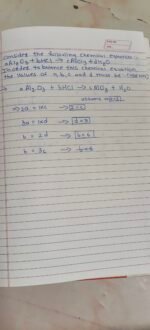 consider the following chemical equation :-
aAl₂O₃ + bHCl → cAlCl₃ + dH₂O
In order to balance this chemical equation,
the values of a, b, c and d must be
→ aAl₂O₃ + bHCl → cAlCl₃ + H₂O
assume a=1
→ 2a = 1xc → 2=c
3a = 1xd → d=3
b = 2d → b=6
b = 3c → b=6